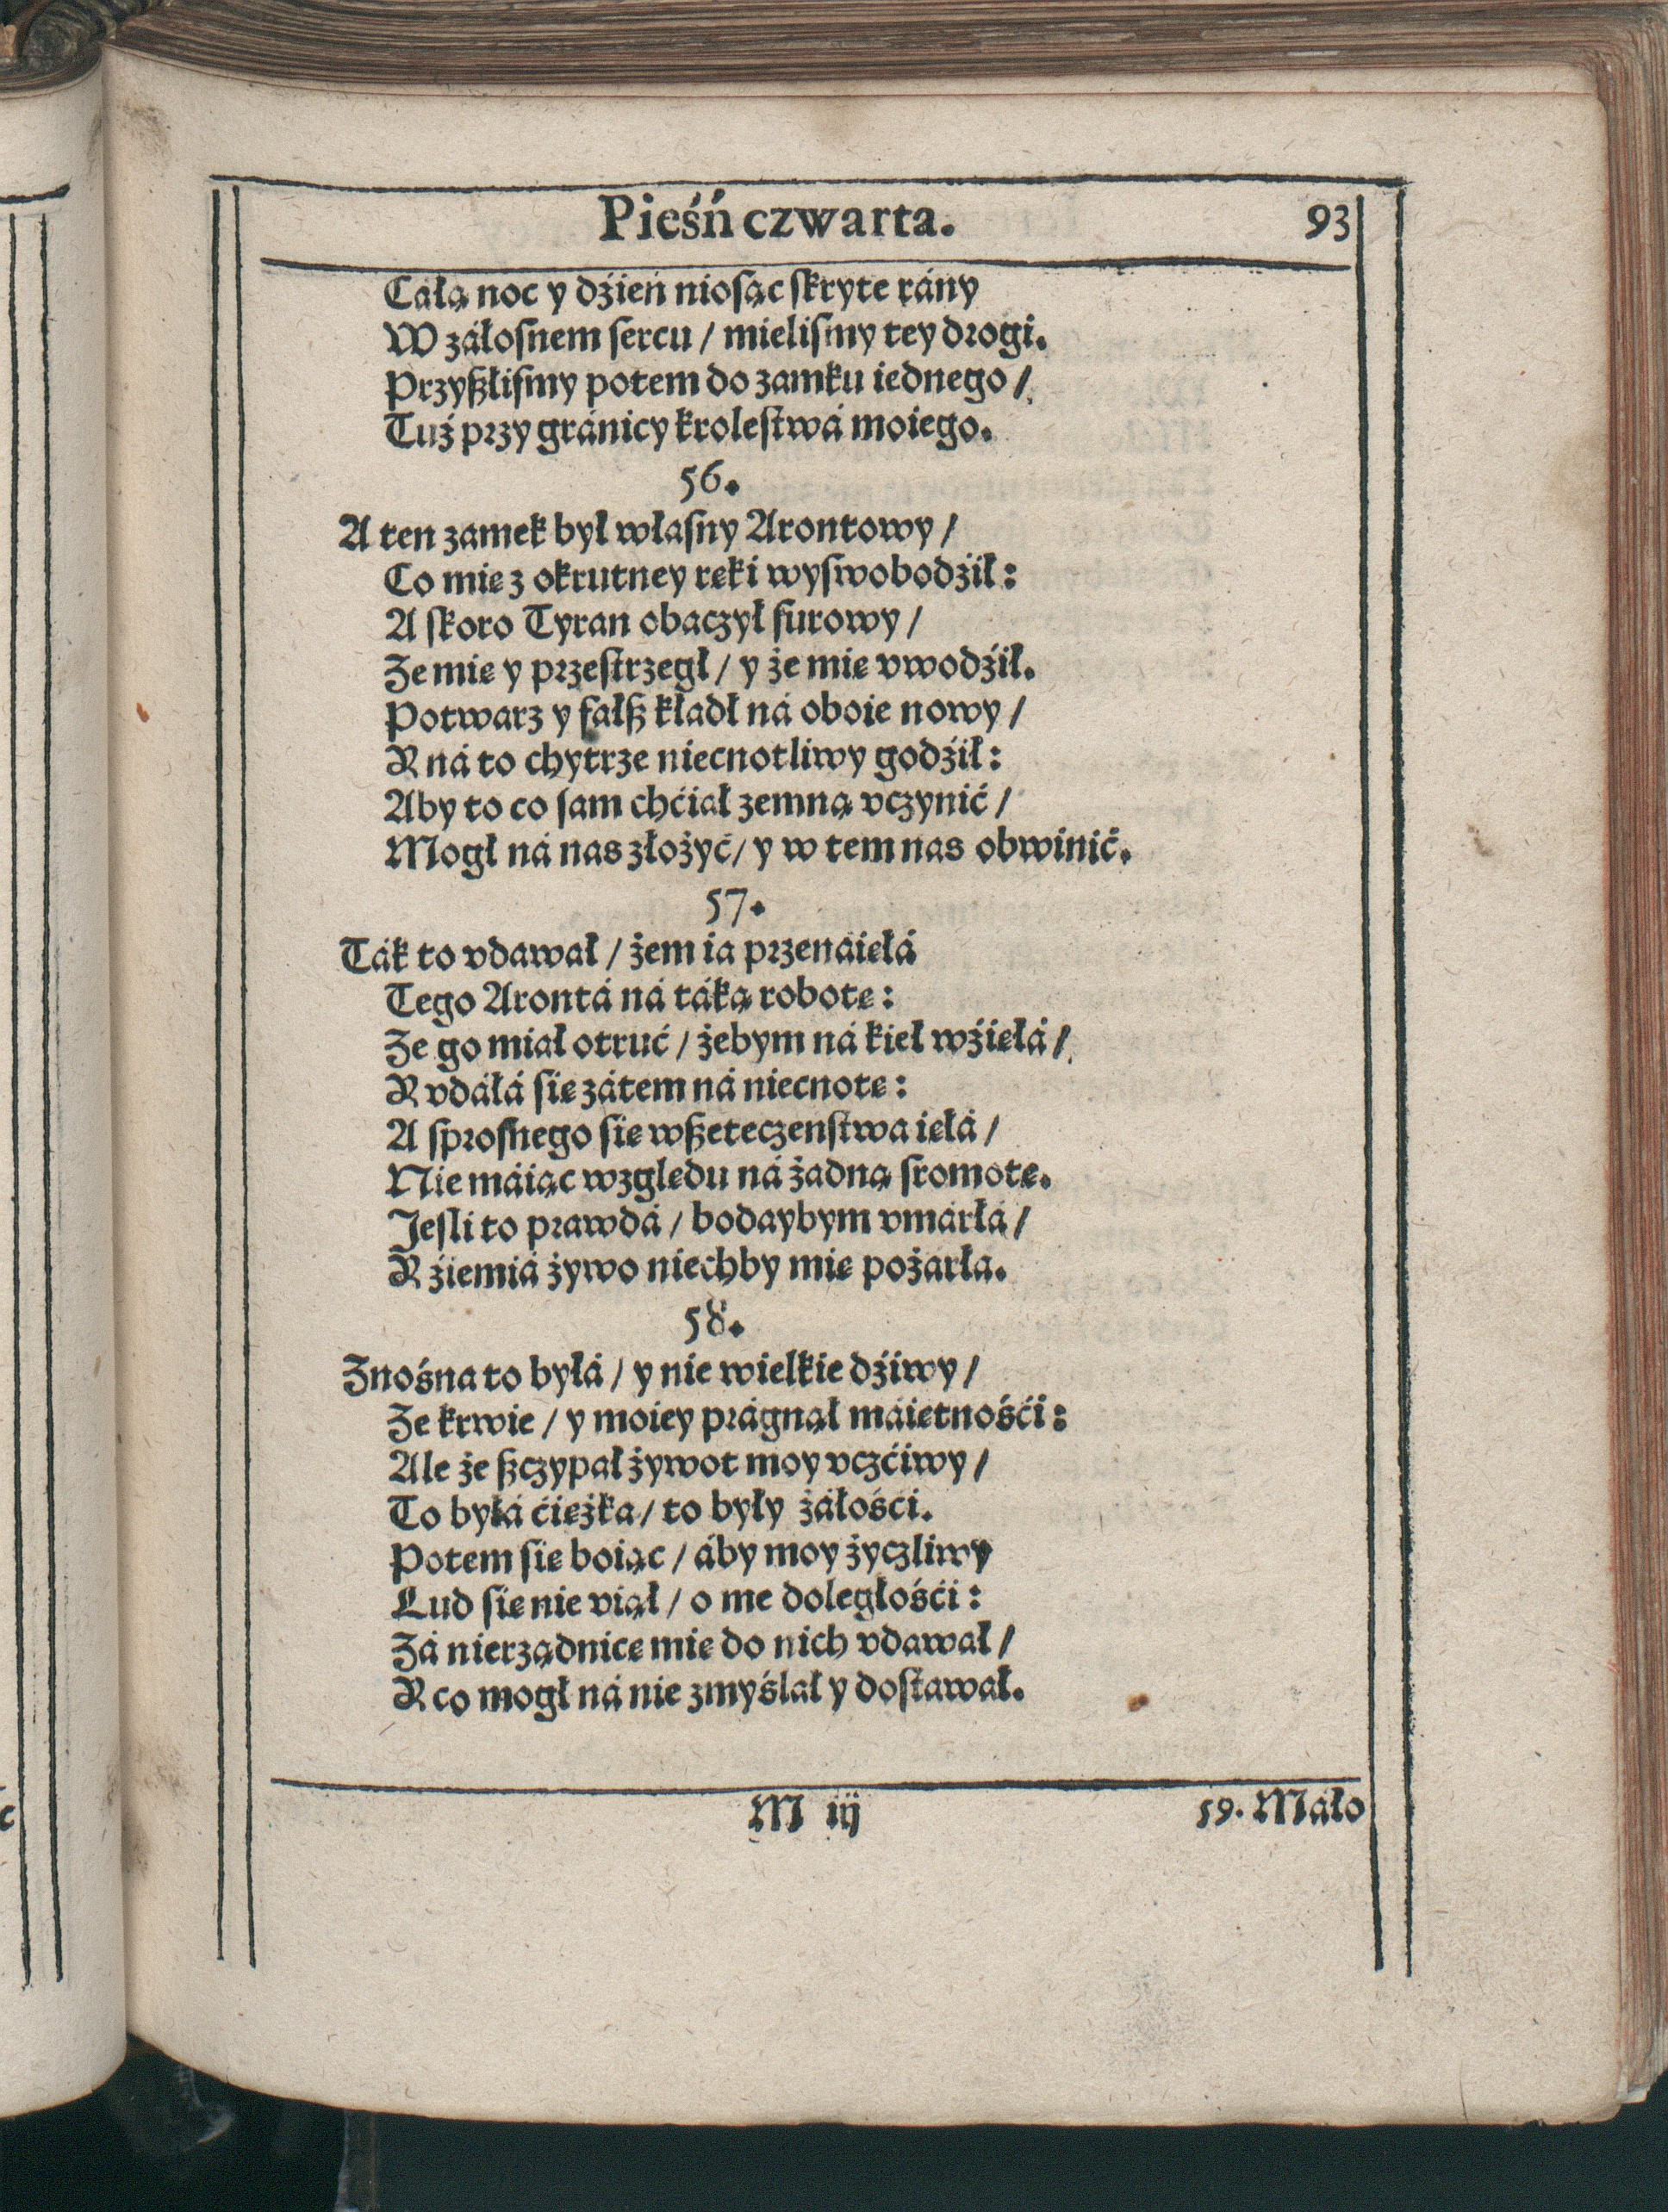 Pieśń czwarta.
93
Całą noc y dźień niosąc skryte rány
W záłosnem sercu / mielismy tey drogi.
Przyßlismy potem do zamku iednego /
Tuż przy gránicy krolestwá moiego.
56.
A ten zamek był własny Arontowy /
Co mię z okrutney ręki wyswobodźił:
A skoro Tyran obaczył surowy /
Ze mie y przestrzegł / y że mię vwodźił.
Potwarz y fałß kładł ná oboie nowy /
R ná to chytrze niecnotliwy godźił:
Aby to co sam chćiał zemną vczynić /
Mogł ná nas złożyć / y w tem nas obwinić.
57.
Ták to vdawał / żem ia przenáięłá
Tego Arontá ná táką robotę:
Ze go miał otruć / żebym ná kieł wźięłá /
R vdáłá się zátem ná niecnotę:
A sprosnego się wßeteczenstwa ięłá /
Nie máiąc względu ná żadną sromotę.
Jesli to prawdá / bodaybym vmárłá /
R źiemiá żywo niechby mię pożarła.
58.
Znośna to byłá / y nie wielkie dźiwy /
Ze krwie / y moiey prágnął máiętnośći:
Ale że ßczypał żywot moy vczćiwy /
To byłá ćiężka / to były żáłośći.
Potem się boiąc / áby moy życzliwy
Lud się nie viął / o me doległośći:
Zá nierządnicę mię do nich vdawał /
R co mogł ná nie zmyślał y dostawał.
M iij
59. Máło